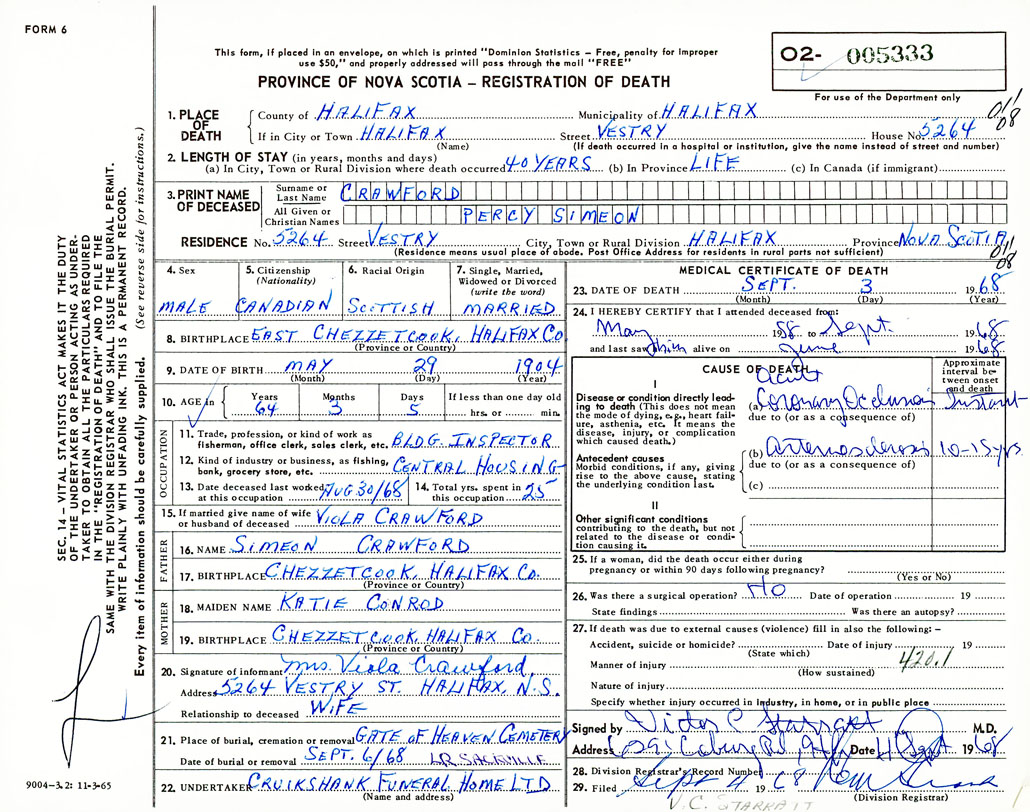 FORM 6
This form, if placed in an envelope, on which is printed "Dominion Statistics – Free, penalty for improper
use $50," and properly addressed will pass through the mail "FREE"
PROVINCE OF NOVA SCOTIA – REGISTRATION OF DEATH
02- 005333
For use of the Department only
011
08
1. PLACE OF DEATH
County of HALIFAX Municipality of HALIFAX
If in City or Town HALIFAX Street VESTRY House No. 5264
(Name) (If death occurred in a hospital or institution, give the name instead of street and number)
2. LENGTH OF STAY (in years, months and days)
(a) In City, Town or Rural Division where death occurred 40 YEARS (b) In Province LIFE (c) In Canada (if immigrant)
3. PRINT NAME OF DECEASED
Surname or Last Name CRAWFORD
All Given or Christian Names PERCY SIMEON
RESIDENCE No. 5264 Street VESTRY City, Town or Rural Division HALIFAX Province NOVA SCOTIA
(Residence means usual place of abode. Post Office Address for residents in rural parts not sufficient)
011
08
4. Sex
MALE
5. Citizenship (Nationality)
CANADIAN
6. Racial Origin
SCOTTISH
7. Single, Married, Widowed or Divorced (write the word)
MARRIED
8. BIRTHPLACE EAST CHEZZETCOOK, HALIFAX CO
(Province or Country)
9. DATE OF BIRTH MAY 29 1904
(Month) (Day) (Year)
10. AGE in
Years Months Days If less than one day old
64 3 5 hrs. or min.
OCCUPATION
11. Trade, profession, or kind of work as
fisherman, office clerk, sales clerk, etc. BLDG. INSPECTOR
12. Kind of industry or business, as fishing,
bank, grocery store, etc. CENTRAL HOUSING
13. Date deceased last worked at this occupation AUG 30/68
14. Total yrs. spent in this occupation 25
15. If married give name of wife
or husband of deceased VIOLA CRAWFORD
FATHER
16. NAME SIMEON CRAWFORD
17. BIRTHPLACE CHEZZETCOOK, HALIFAX CO.
(Province or Country)
MOTHER
18. MAIDEN NAME KATIE CONROD
19. BIRTHPLACE CHEZZETCOOK, HALIFAX CO.
(Province or Country)
20. Signature of informant Mrs. Viola Crawford,
Address 5264 VESTRY ST. HALIFAX, N.S.
Relationship to deceased WIFE
21. Place of burial, cremation or removal GATE OF HEAVEN CEMETERY
Date of burial or removal SEPT. 6/68 LR. SACKVILLE
22. UNDERTAKER CRUIKSHANK FUNERAL HOME LTD
(Name and address)
MEDICAL CERTIFICATE OF DEATH
23. DATE OF DEATH SEPT. 3 1968
(Month) (Day) (Year)
24. I HEREBY CERTIFY that I attended deceased from:
May 1958 to Sept. 1968
and last saw him alive on June 1968
CAUSE OF DEATH
Approximate interval between onset and death
I
Disease or condition directly leading to death (This does not mean the mode of dying, e.g., heart failure, asthenia, etc. It means the disease, injury, or complication which caused death.)
Acute
(a) Coronary Occlusion Instant
due to (or as a consequence of)
Antecedent causes
Morbid conditions, if any, giving rise to the above cause, stating the underlying condition last.
(b) Arteriosclerosis 10-15 yrs
due to (or as a consequence of)
(c)
II
Other significant conditions
contributing to the death, but not related to the disease or condition causing it.
25. If a woman, did the death occur either during
pregnancy or within 90 days following pregnancy?
(Yes or No)
26. Was there a surgical operation? No Date of operation 19
State findings Was there an autopsy?
27. If death was due to external causes (violence) fill in also the following: –
Accident, suicide or homicide? Date of injury 19
(State which)
Manner of injury 420.1
(How sustained)
Nature of injury
Specify whether injury occurred in industry, in home, or in public place
Signed by Victor C M.D.
Address Coburg Rd Date 4 Sept. 1968
28. Division Registrar's Record Number
29. Filed Sept 4 1968
(Division Registrar)
V. C. STARRATT
SEC. 14 – VITAL STATISTICS ACT MAKES IT THE DUTY
OF THE UNDERTAKER OR PERSON ACTING AS UNDER-
TAKER TO OBTAIN ALL THE PARTICULARS REQUIRED
IN THE "REGISTRATION OF DEATH" AND TO FILE THE
SAME WITH THE DIVISION REGISTRAR WHO SHALL ISSUE THE BURIAL PERMIT.
WRITE PLAINLY WITH UNFADING INK. THIS IS A PERMANENT RECORD.
Every item of information should be carefully supplied. (See reverse side for instructions.)
9004-3.2: 11-3-65